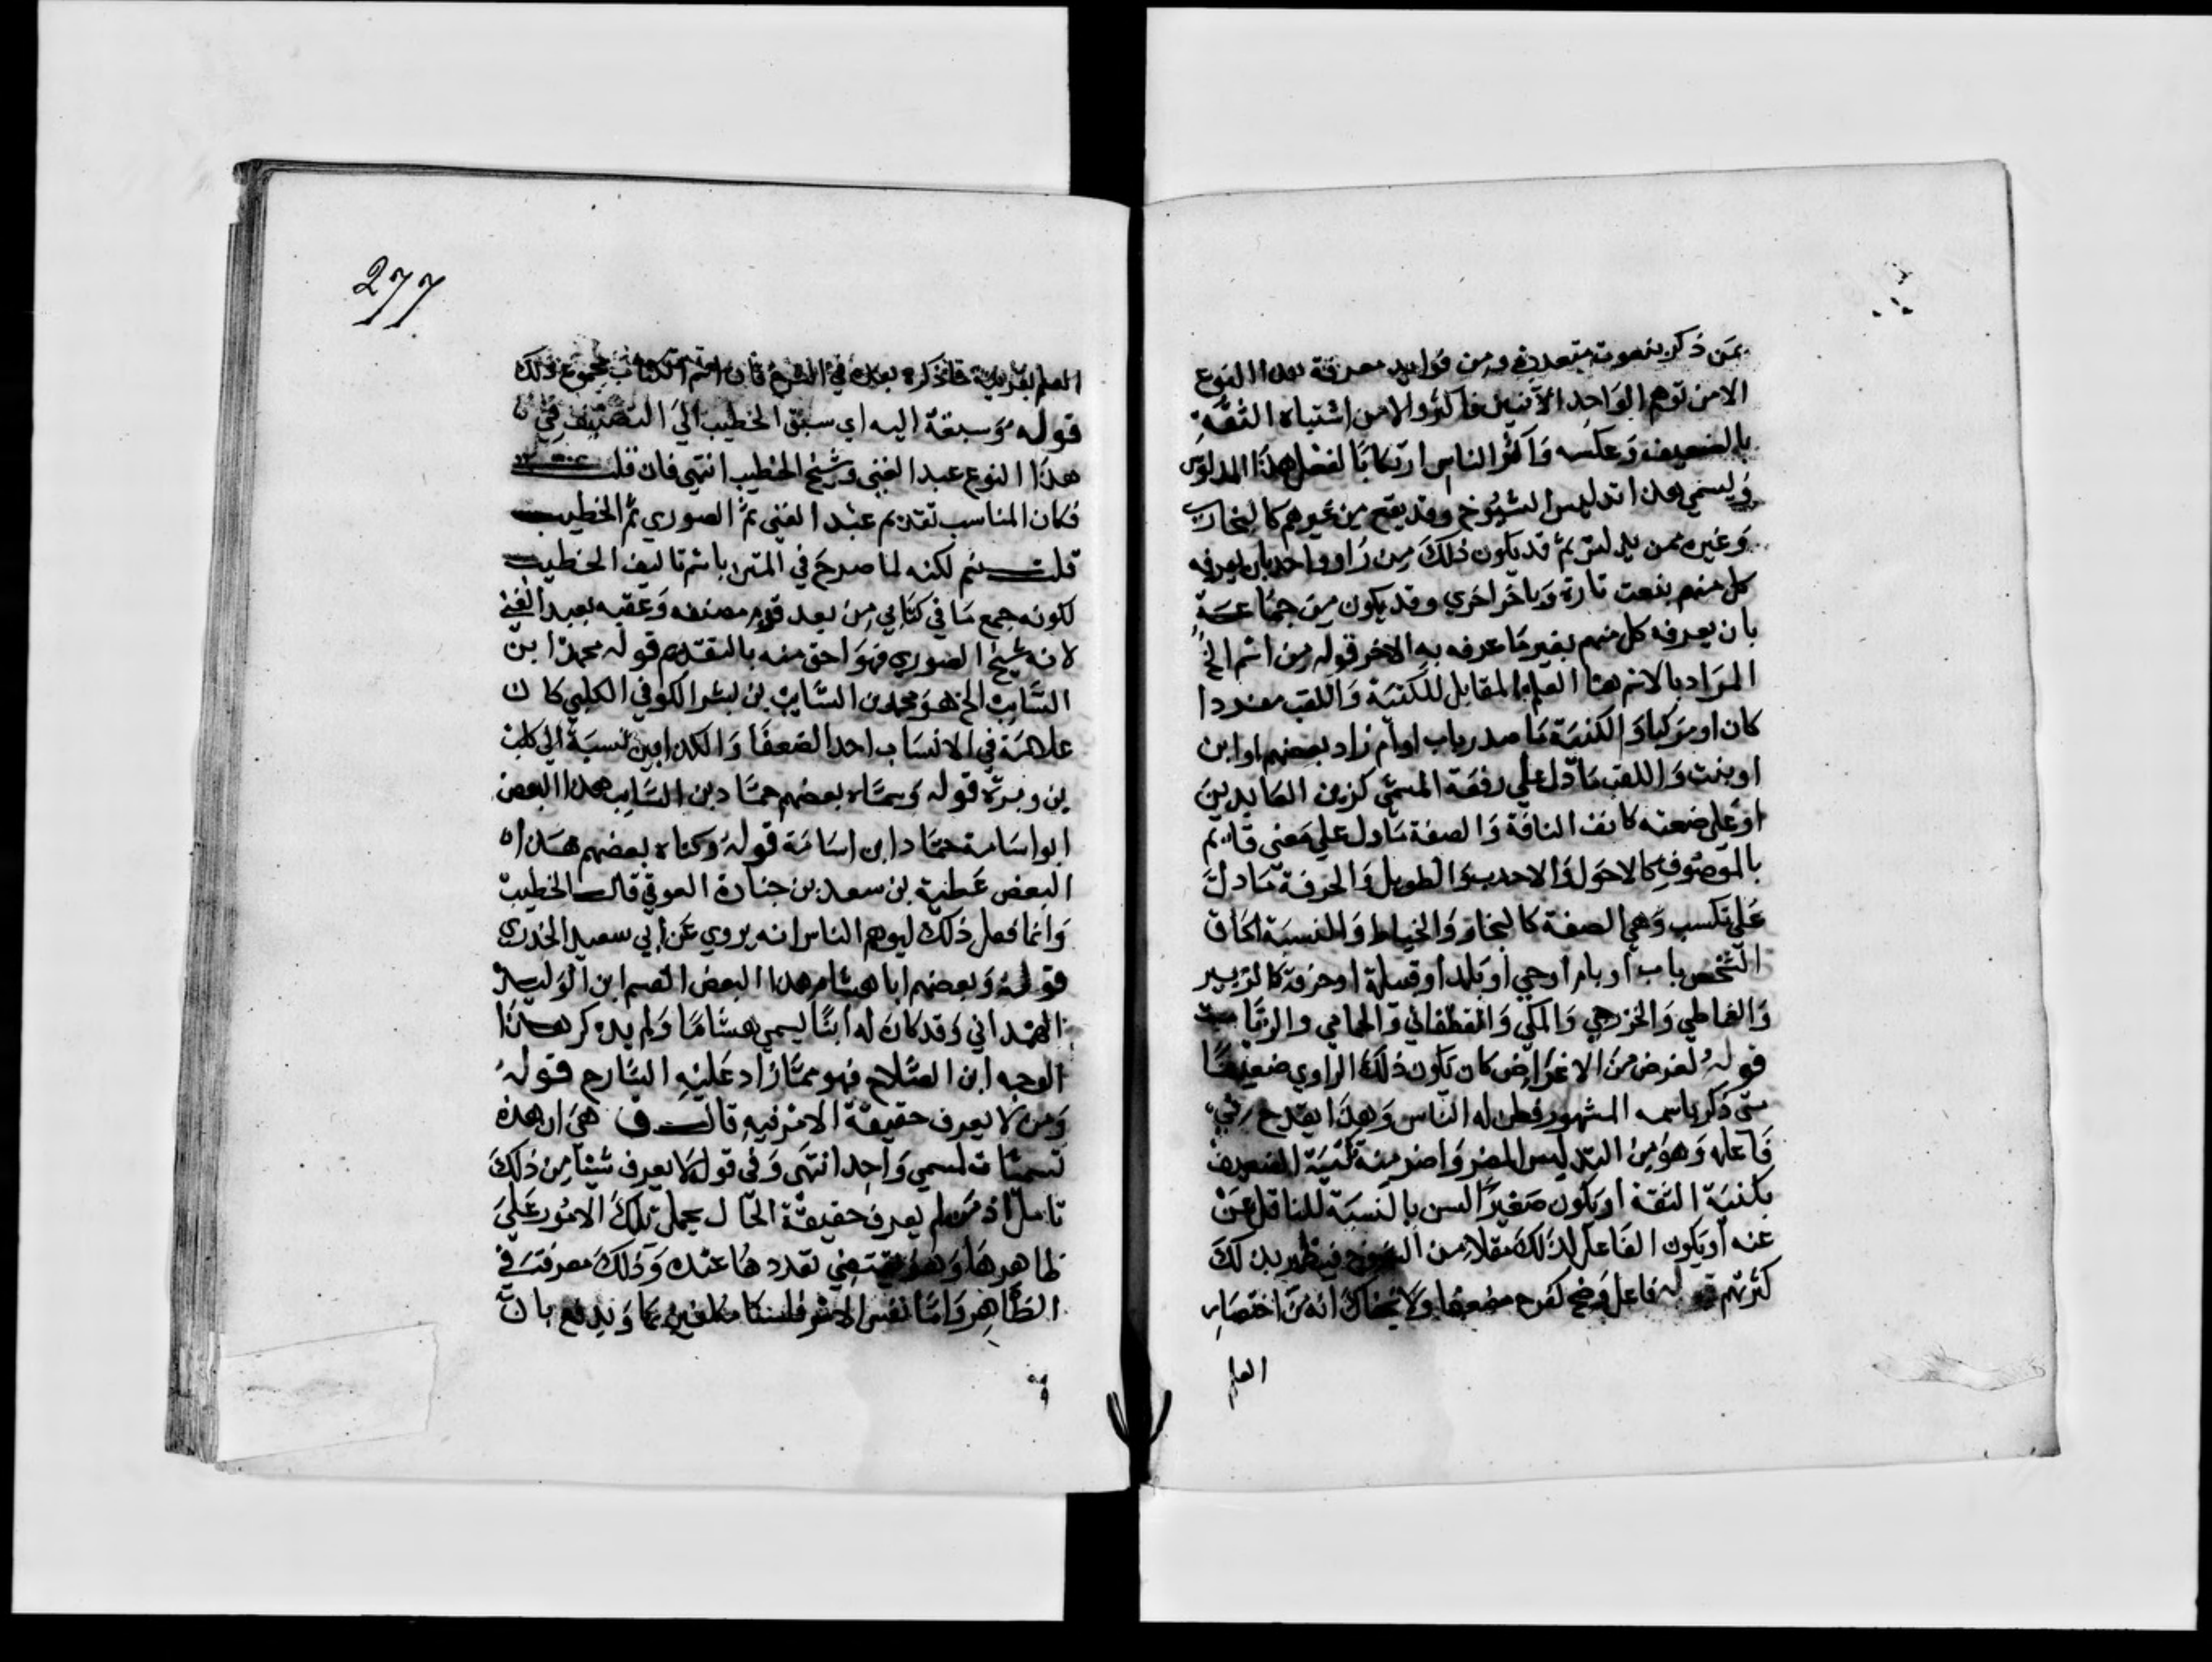 بمن ذكر بنعوت متعددة ومن فوايد معرفة هذا النوع
الامن توهم الواحد الاثنين فاكثر والامن اشتباه الثقة
بالضعيف وعكسه واكثر الناس ارتكابا لفعل هذا المدلسون
ويسمى هذا تدليس الشيوخ وقد يقع من غيرهم كالبخاري
وغيره ممن يدلس ثم قد يكون ذلك من راو واحد بان يعرفه
كل منهم بنعت تارة وباخر اخرى وقد يكون من جماعة
بان يعرفه كل منهم بغير ما عرفه به الاخر قوله من اسم الخ
المراد بالاسم هنا العلم المقابل للكنية واللقب مفردا
كان او مركبا والكنية ما صدر باب او ام زاد بعضهم او ابن
او بنت واللقب ما دل على رفعة المسمى كزين العابدين
او على ضعته كانف الناقة والصفة ما دل على معنى قايم
بالموصوف كالاحول والاحدب والطويل والحرفة ما دل
على تكسب وهي الصفة كالنجار والخياط والنسبة الحاق
الشخص باب او بام او حي او بلد او قبيلة او حرفة كالزبير
والفاطمي والخزرجي والمكي والغطفاني والحمامي والزيات
قوله لغرض من الاغراض كان يكون ذلك الراوي ضعيفا
متى ذكر باسمه المشهور فطن له الناس وهذا يقدح في
فاعله وهو من التدليس المضر واضر منه تكنية الضعيف
بكنية الثقة او يكون صغير السن بالنسبة للناقل عن
عنه او يكون الفاعل لذلك مقلا من الشيوخ فيظهر بذلك
كثرتهم قوله فاعل وضح كفرح مضعفا ولا يخفاك انه من اختصار
العلم
277
العلم بقرينة ما ذكره بعده في الشرح فان اسم الكتاب مجموع ذلك
قوله وسبقه اليه اي سبق الخطيب الى التصنيف في
هذا النوع عبد الغني وشيخ الخطيب انتهى فان قلت
فكان المناسب تقديم عبد الغني ثم الصوري ثم الخطيب
قلت نعم لكنه لما صرح في المتن باسم تاليف الخطيب
لكونه جمع ما في كتابي من بعد قدم مصنفه وعقبه بعبد الغني
لانه شيخ الصوري فهو احق منه بالتقديم قوله محمد ابن
السايب الخ هو محمد بن السايب بن بشر الكوفي الكلبي كان
علامة في الانساب احد الضعفا والكلابين نسبة الى كلب
بن وبرة قوله وسماه بعضهم حماد بن السايب هذا البعض
ابو اسامة حماد ابن اسامة قوله وكناه بعضهم هذا
البعض عطية بن سعد بن جنادة العوفي قال الخطيب
وانما فعل ذلك ليوهم الناس انه يروي عن ابي سعيد الخدري
قوله وبعضهم ابا هشام هذا البعض القسم ابن الوليد
الهمداني وقد كان له ابنا يسمى هشاما ولم يذكر هذا
الوجه ابن الصلاح فهو مما زاد عليه الشارح قوله
ومن لا يعرف حقيقة الامر فيه قال ق هي ان هذه
تسميات لمسمى واحد انتهى وفي قوله لا يعرف شيئا من ذلك
تامل اذ من لم يعرف حقيقة الحال يحمل تلك الامور على
ظاهرها وهو يقتضي تعددها عنده وذلك معرفته في
الظاهر واما نفس الامر فلسنا مكلفين بما ويدفع بان